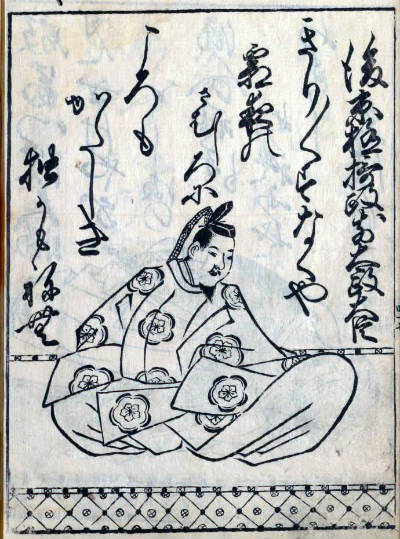 後京極摂政前太政大臣
きり〱すなくや
霜夜の
さむしろに
ころも
かたしき
独かもねむ